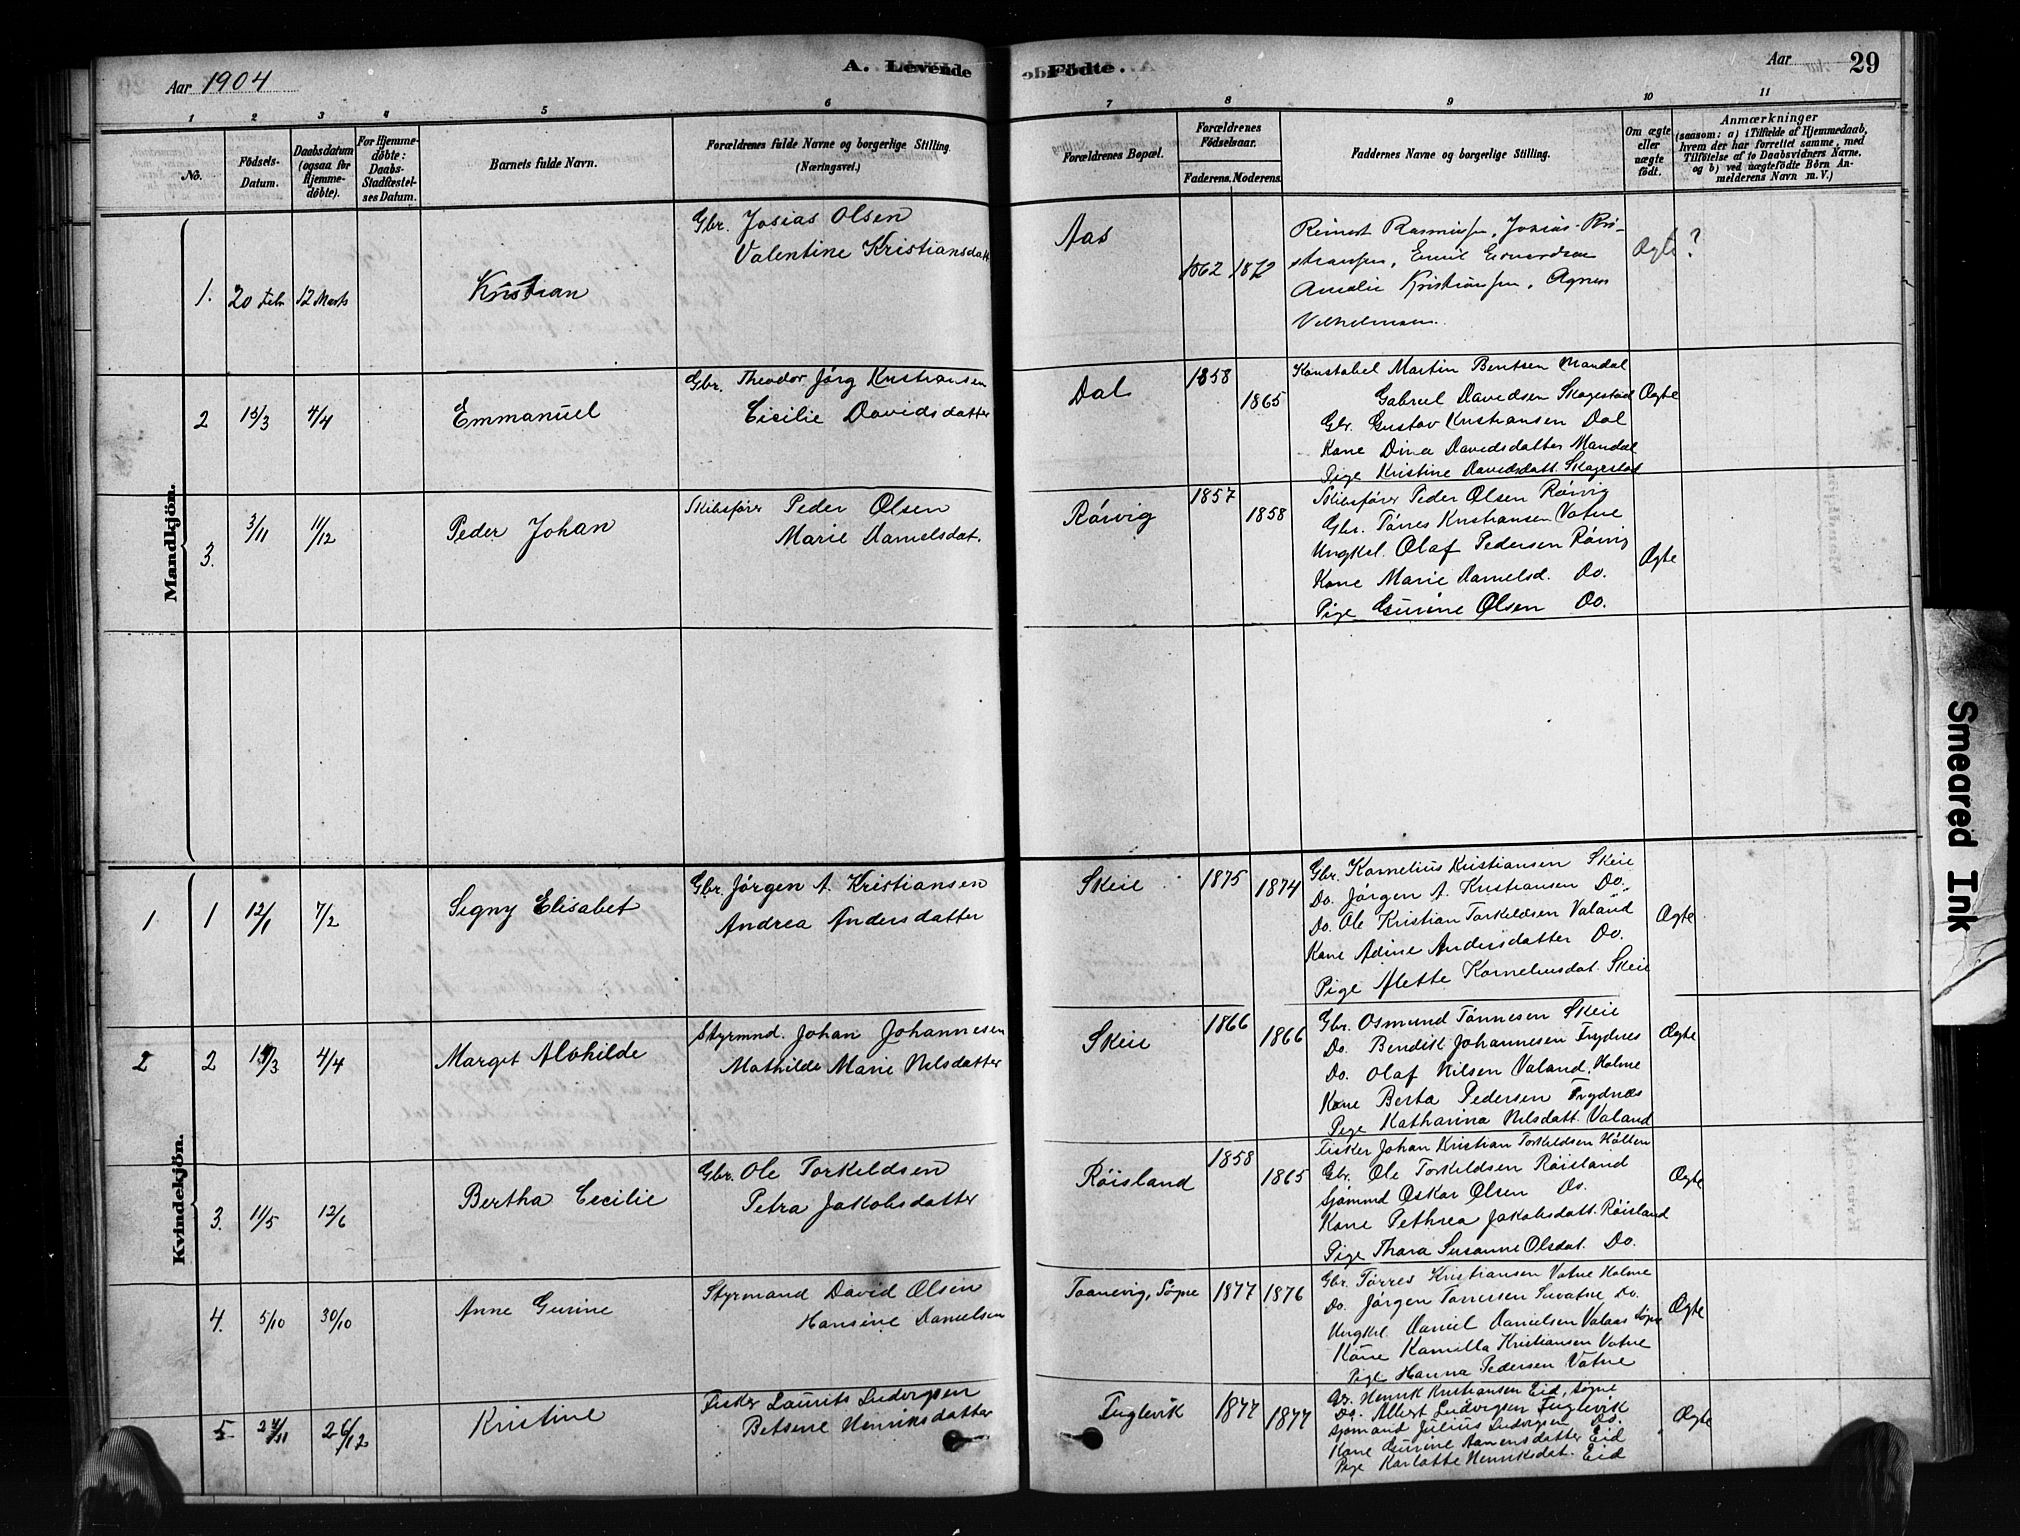 Aar 1904
A. Levende
Fødte.
Aar
29
1
2
3
4
5
6
7
8
9
10
11
No.
Fødsels-
Datum.
Daabsdatum
(ogsaa for
Hjemme-
døbte).
For Hjemme-
døbte:
Daabs-
Stadfæstel-
ses Datum.
Barnets fulde Navn.
Forældrenes fulde Navne og borgerlige Stilling.
(Næringsvei.)
Forældrenes Bopæl.
Forældrenes
Fødselsaar.
Faderens. Moderens.
Faddernes Navne og borgerlige Stilling.
Om ægte
eller
uægte
født.
Anmærkninger
(saasom: a) i Tilfælde af Hjemmedaab,
hvem der har forrettet samme, med
Tilføielse af to Daabsvidners Navne,
og b) ved uægtefødte Børn An-
melderens Navn m. V.)
Mandkjøn.
1. 20 Febr 12 Marts
Kristian
Gbr. Josias Olsen
Valentine Kristiansdatt.
Aas
1862 1872
Reinert Rasmussen, Josias Kri-
stiansen, Emil Edvardsen
Amalie Kristiansen, Agnes
Vilhelmsen.
Ægte ?
2 15/3 4/4
Emmanuel
Gbr. Theodor Jørg Kristiansen
Cicilie Davidsdatter
Dal
1858
1865
Konstabel Martin Bentsen Mandal
Gabriel Davidsen Skagestad
Gbr. Gustav Kristiansen Dal
Kone Dina Davidsdatter Mandal
Pige Kristine Davidsdatt. Skagestad
Ægte
3. 3/11 11/12
Peder Johan
Skibsfører Peder Olsen
Marie Danielsdat.
Røivig
1857
1858
Skibsfører Peder Olsen Røivig
Gbr. Tørres Kristiansen Vatne
Ungkl. Olaf Pedersen Røivig
Kone Marie Danielsd. Do.
Pige Gurine Olsen Do.
Ægte
Kvindekjøn.
1 1 12/1 7/2
Signy Elisabet
Gbr. Jørgen A. Kristiansen
Andrea Andersdatter
Skeie
1875
1874
Gbr. Kornelius Kristiansen Skeie
Do. Jørgen A. Kristiansen Do.
Do. Ole Kristian Torkildsen Valand
Kone Adine Andersdatter Do.
Pige Alette Korneliusdat. Skeie
Ægte
2 2 15/3 4/4
Margit Alvhilde
Styrmnd. Johan Johannesen
Mathilde Marie Nilsdatter
Skeie
1866
1866
Gbr. Osmund Tønnesen Skeie
Do. Bendik Johannesen Frydnes
Do. Olaf Nilsen Valand, Holme
Kone Berta Pedersen Frydnæs
Pige Katharina Nilsdatt. Valand
Ægte
3. 11/5 12/6
Bertha Cecilie
Gbr. Ole Torkildsen
Petra Jakobsdatter
Røisland
1858
1865
Fisker Johan Kristian Torkildsen Holten
Gbr. Ole Torkildsen Røisland
Sjømnd Oskar Olsen Do.
Kone Pethrea Jakobsdatt. Røisland
Pige Thara Susanne Olsdat. Do.
Ægte
4. 5/10 30/10
Anne Gurine
Styrmand David Olsen
Hansine Danielsen
Taanevig, Søgne
1877 1876
Gbr. Tørres Kristiansen Vatne Holme
Do. Jørgen Tørresen Do.
Ungkl. Daniel Danielsen Valaas Søgne
Kone Kamilla Kristiansen Vatne
Pige Hanna Pedersen Vatne
Ægte
5 26/12
Kristine
Fisker Laurits Ludvigsen
Betsene Henriksdatter
Fuglevik
1877 1877
Gbr. Henrik Kristiansen Eid, Søgne
Do. Albert Ludvigsen Fuglevik
Sjømand Julius Ludvigsen Do.
Kone Gurine Aanensdatter Eid
Pige Karlotte Henriksdat. Eid
Ægte
Smeared Ink